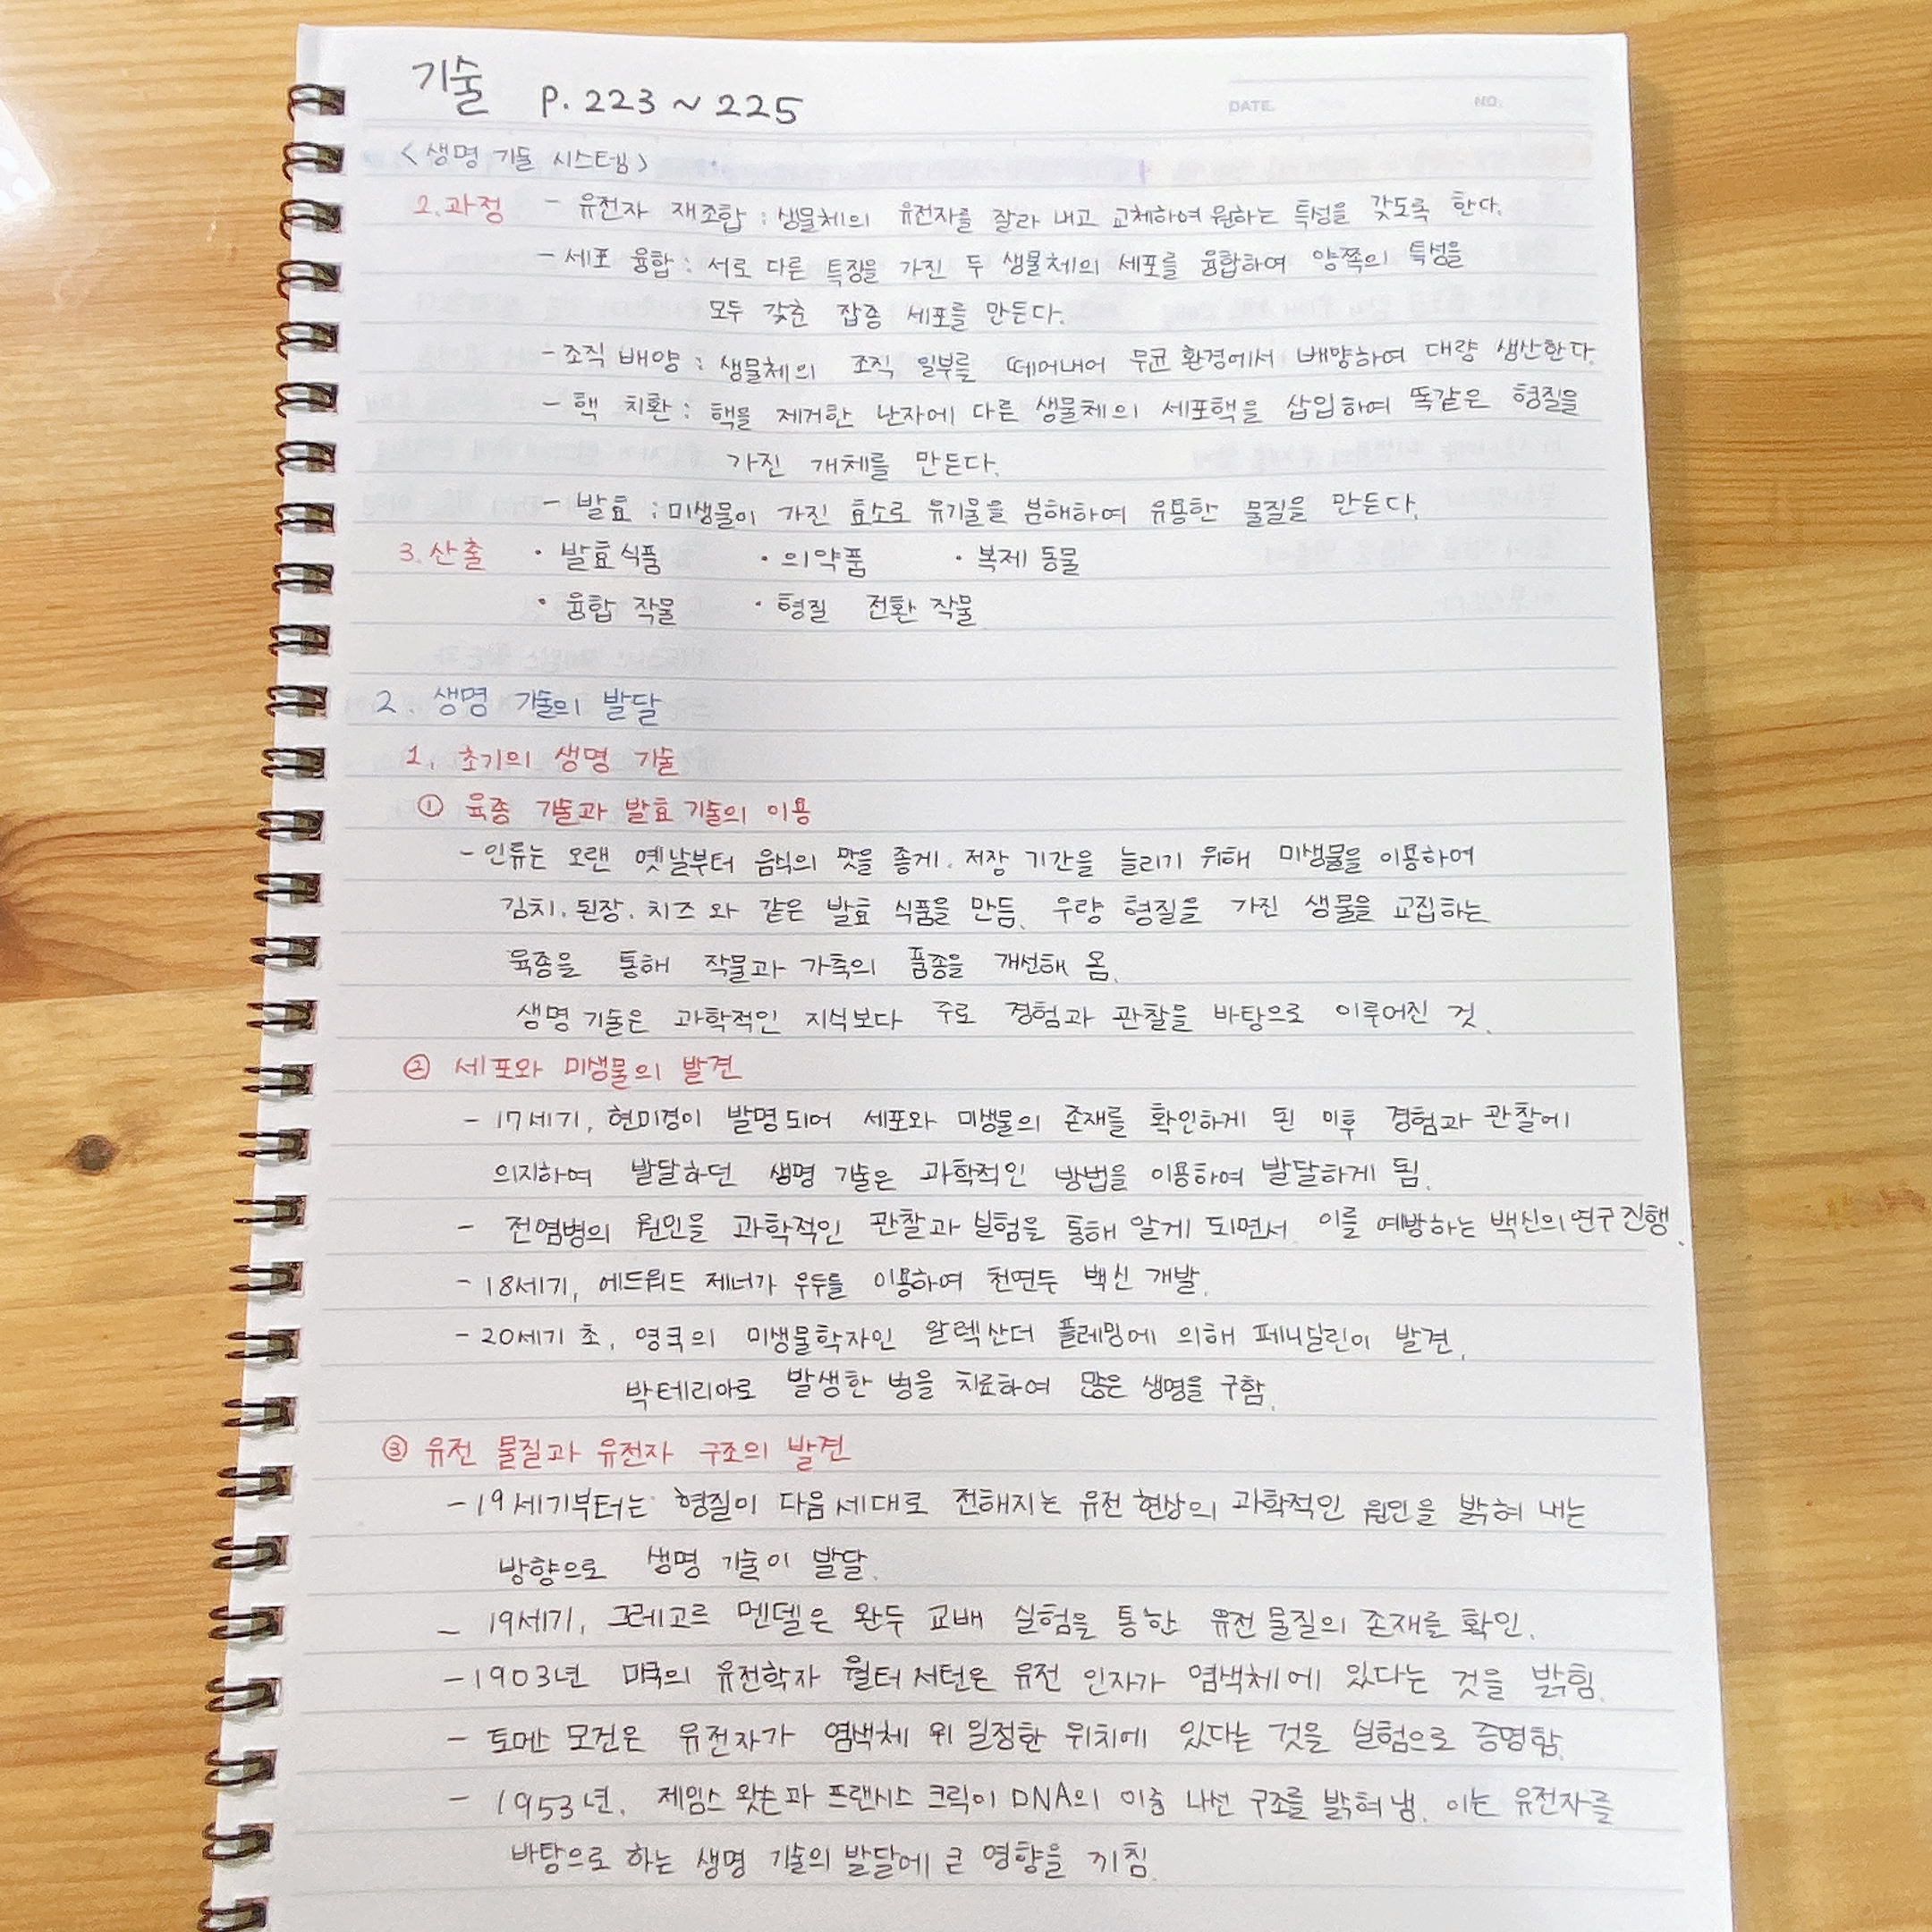 기술 p. 223 ~ 225
DATE. NO.
<생명 기술 시스템>
2. 과정 - 유전자 재조합 : 생물체의 유전자를 잘라 내고 교체하여 원하는 특성을 갖도록 한다.
- 세포 융합 : 서로 다른 특징을 가진 두 생물체의 세포를 융합하여 양쪽의 특성을
모두 갖춘 잡종 세포를 만든다.
- 조직 배양 : 생물체의 조직 일부를 떼어내어 무균 환경에서 배양하여 대량 생산한다.
- 핵 치환 : 핵을 제거한 난자에 다른 생물체의 세포핵을 삽입하여 똑같은 형질을
가진 개체를 만든다.
- 발효 : 미생물이 가진 효소로 유기물을 분해하여 유용한 물질을 만든다.
3. 산출 • 발효 식품 • 의약품 • 복제 동물
• 융합 작물 • 형질 전환 작물
2. 생명 기술의 발달
1. 초기의 생명 기술
① 육종 기술과 발효 기술의 이용
- 인류는 오랜 옛날부터 음식의 맛을 좋게. 저장 기간을 늘리기 위해 미생물을 이용하여
김치. 된장. 치즈와 같은 발효 식품을 만듬. 우량 형질을 가진 생물을 교집하는
육종을 통해 작물과 가축의 품종을 개선해 옴.
생명 기술은 과학적인 지식보다 주로 경험과 관찰을 바탕으로 이루어진 것.
② 세포와 미생물의 발견
- 17세기, 현미경이 발명되어 세포와 미생물의 존재를 확인하게 된 이후 경험과 관찰에
의지하여 발달하던 생명 기술은 과학적인 방법을 이용하여 발달하게 됨.
- 전염병의 원인을 과학적인 관찰과 실험을 통해 알게 되면서 이를 예방하는 백신의 연구 진행.
- 18세기, 에드워드 제너가 우두를 이용하여 천연두 백신 개발.
- 20세기 초, 영국의 미생물학자인 알렉산더 플레밍에 의해 페니실린이 발견.
박테리아로 발생한 병을 치료하여 많은 생명을 구함.
③ 유전 물질과 유전자 구조의 발견
- 19세기부터는 형질이 다음 세대로 전해지는 유전 현상의 과학적인 원인을 밝혀 내는
방향으로 생명 기술이 발달.
- 19세기, 그레고르 멘델은 완두 교배 실험을 통한 유전 물질의 존재를 확인.
- 1903년 미국의 유전학자 월터 서턴은 유전 인자가 염색체에 있다는 것을 밝힘.
- 토멘 모건은 유전자가 염색체 위 일정한 위치에 있다는 것을 실험으로 증명함.
- 1953년, 제임스 왓슨과 프랜시스 크릭이 DNA의 이중 나선 구조를 밝혀냄. 이는 유전자를
바탕으로 하는 생명 기술의 발달에 큰 영향을 끼침.